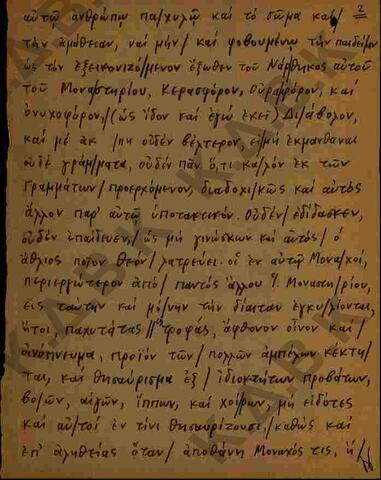 αὐτῷ ἀνθρώπῳ πα/χυλῷ καὶ τὸ σῶμα καὶ/ 2
τὴν ἀμάθειαν, ναὶ μήν/ καὶ φοβουμένῳ τὴν παιδείαν
ὡς τὸν ἐξεικονιζό/μενον ἔξωθεν τοῦ Νάρθηκος αὐτοῦ
τοῦ Μοναστηρίου, Κερασφόρον, Οὐραφόρον, καὶ
ὀνυχοφόρον,/(ὡς ἴδον καὶ ἐγώ ἐκεῖ) Δι/άβολον,
καὶ μὲ ἀκ / οὐδέν βέλτερον, εἰ/μὴ ἐκμανθάναι
οὐδὲ γράμ/ματα, οὐδέν πᾶν ὅ,τι κα/λόν ἐκ τῶν
Γραμμάτων/ προερχόμενον, διαδοχι/κῶς καὶ αὐτός
ἄλλον παρ' αὐτῷ ὑποτακτικόν. Οὐδέν/ ἐδίδασκεν,
οὐδέν ἐπαίδευεν,/ ὡς μὴ γινώσκων καὶ αὐτός/ ὁ
ἄθλιος ποῖον θεόν/ λατρεύει. οἱ ἐν αὐτῷ Μονα/χοί,
περιεργώτερον ἀπό/ παντός ἄλλου Μοναστη/ρίου,
εἰς ταύτην καὶ μό/νην τὴν δίαιταν ἐγκυ/λίονται,
ἤτοι, παχυτάτας// τροφάς, ἄφθονον οἶνον καὶ/
οἰνόπνευμα, προϊόν τῶν/ πολλῶν ἀμπέλων κέκτη/
ται, καὶ θησαύρισμα ἐξ/ ἰδιοκτήτων προβάτων,
βο/ῶν, αἰγῶν, ἵππων, καὶ χοί/ρων, μὴ εἰδότες
καὶ αὐ/τοί ἐν τίνι θησαυρίζουσι,/ καθώς καὶ
ἐπ' ἀληθείας ὅταν/ ἀποθάνῃ Μοναχός τις, ἤ